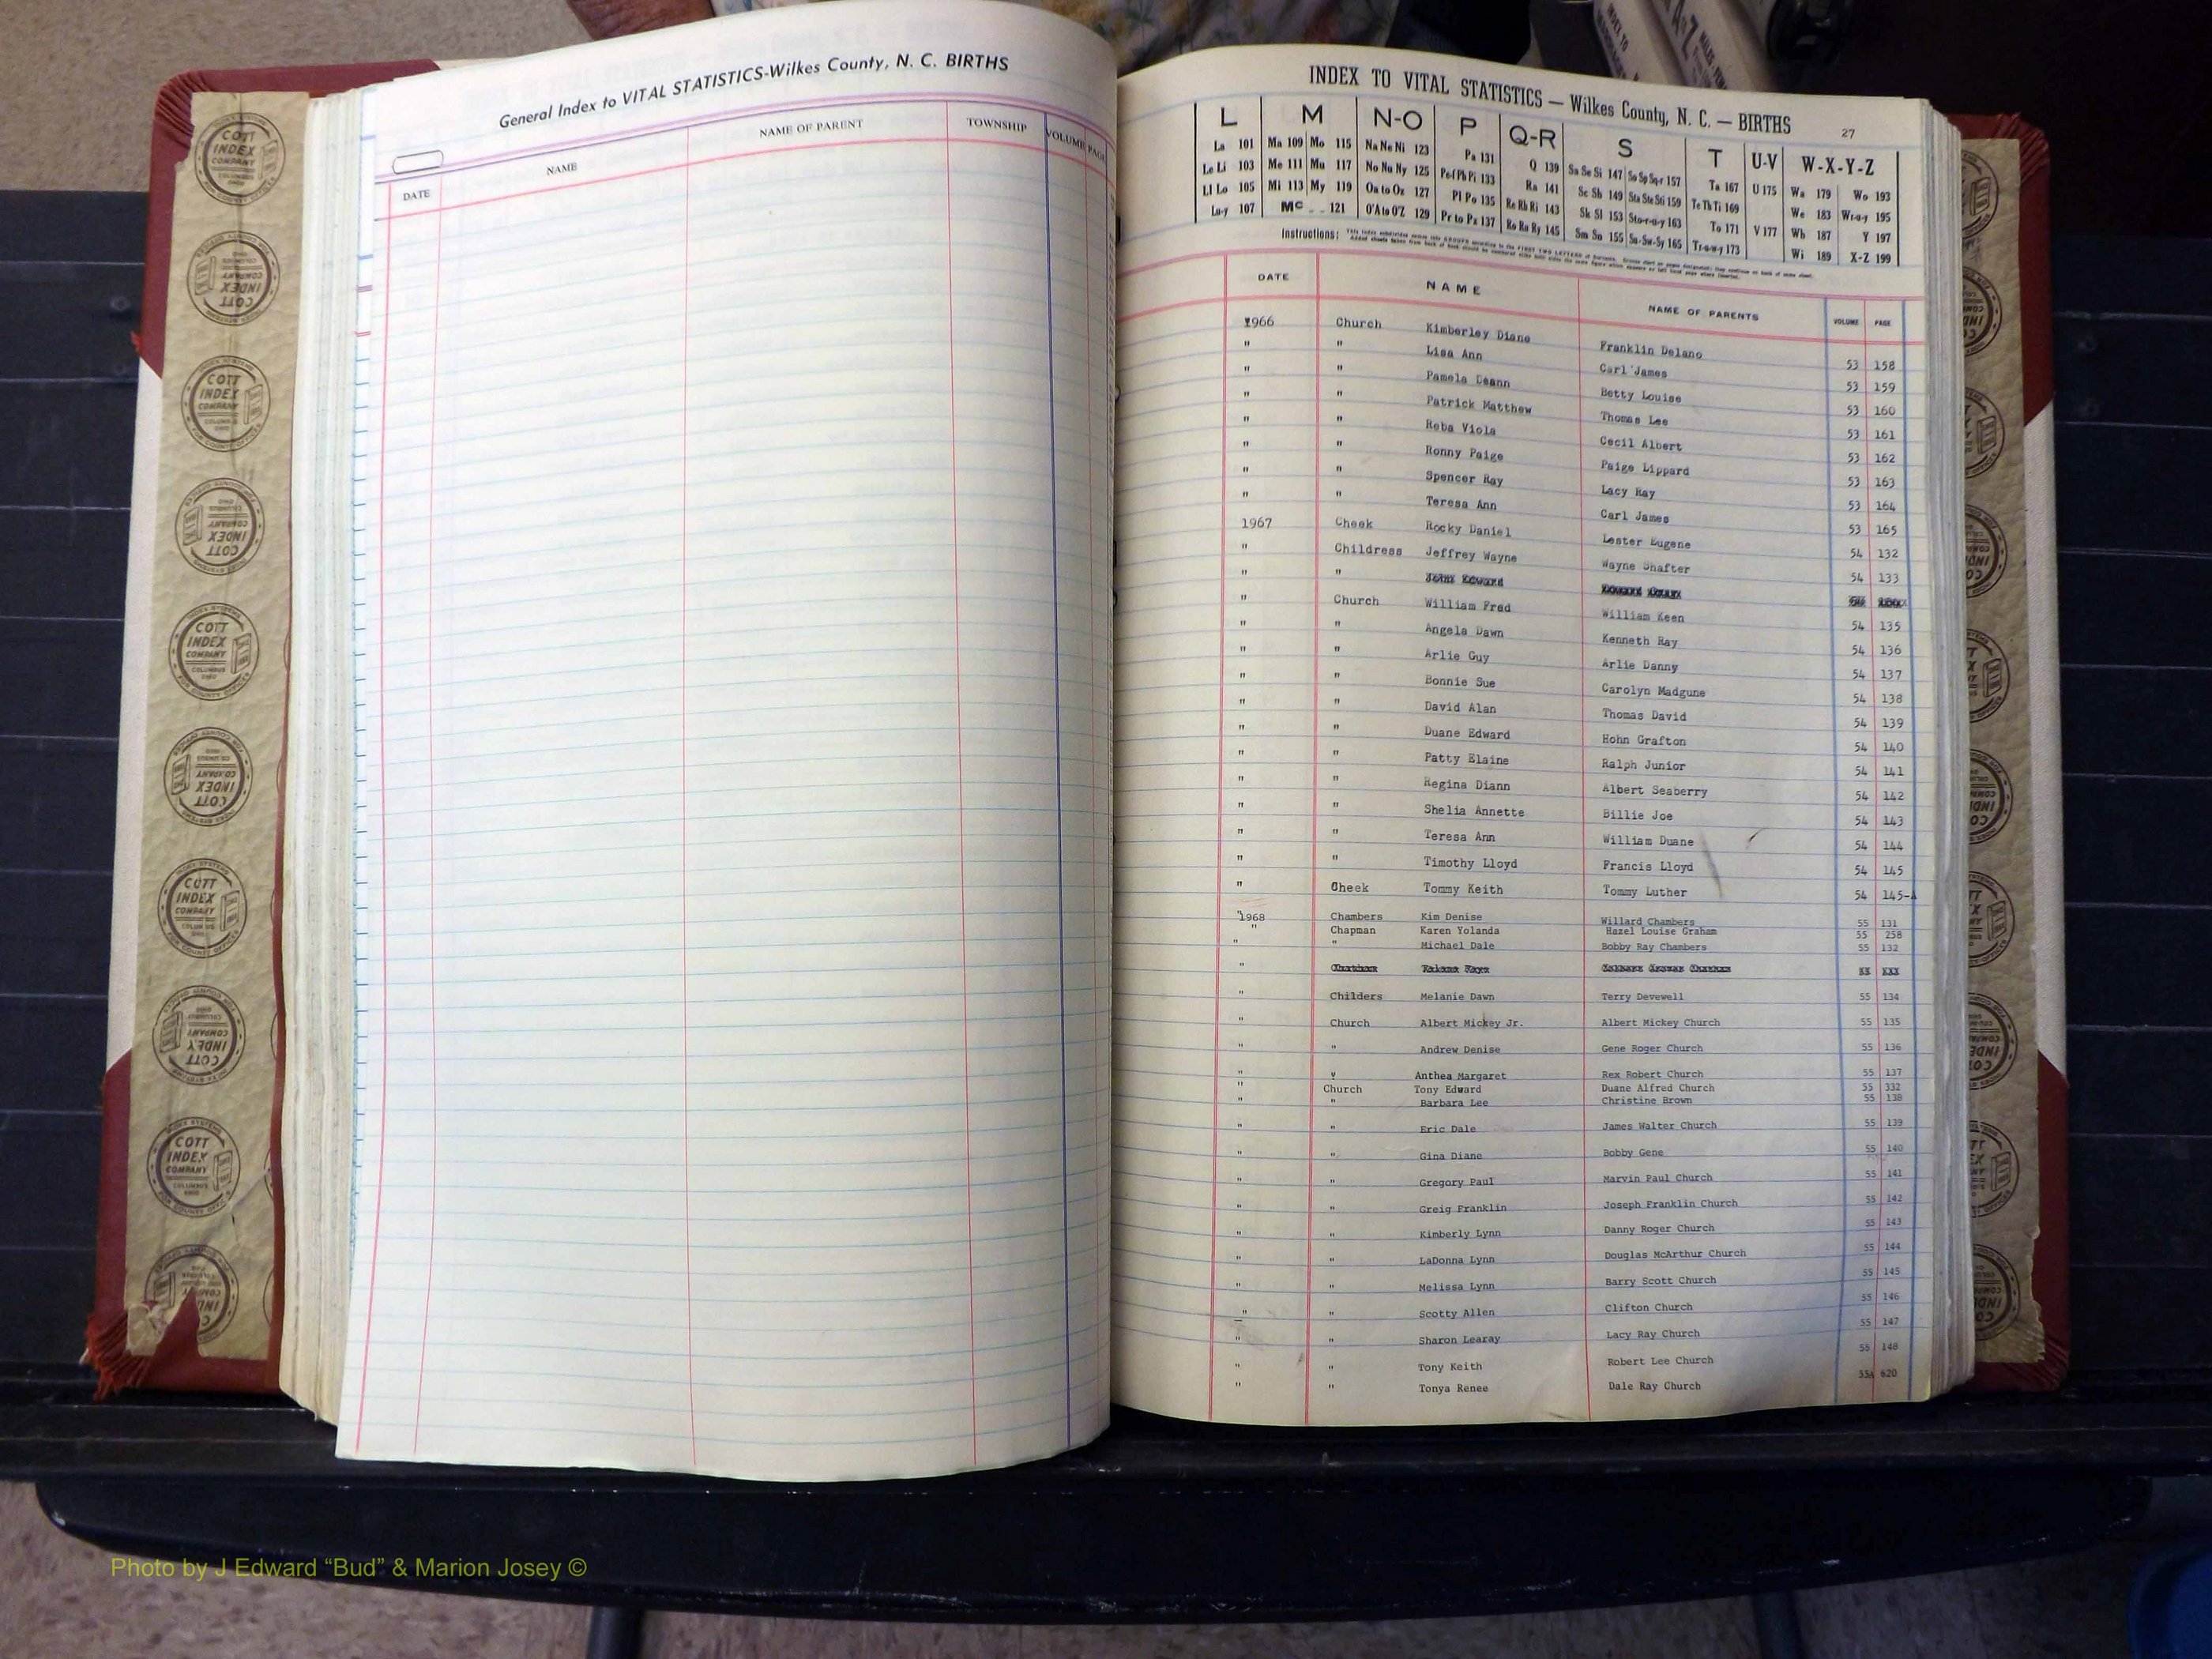 General Index to VITAL STATISTICS-Wilkes County, N. C. BIRTHS
DATE NAME NAME OF PARENT TOWNSHIP VOLUME PAGE
INDEX TO VITAL STATISTICS — Wilkes County, N. C. — BIRTHS
27
L M N-O P Q-R S T U-V W-X-Y-Z
La 101 Ma 109 Mo 115 Na Ne Ni 123 Pa 131 Q 139 Sa Se Si 147 So Sp Sq-r 157 Ta 167 U 175 Wa 179 Wo 193
Le Li 103 Me 111 Mu 117 No Nu Ny 125 Pe-f Ph Pi 133 Ra 141 Sc Sh 149 Sta Ste Sti 159 Te Th Ti 169 We 183 Wr-u-y 195
Ll Lo 105 Mi 113 My 119 Oa to Oz 127 Pl Po 135 Re Rh Ri 143 Sk Sl 153 Sto-r-u-y 163 To 171 V 177 Wh 187 Y 197
Lu-y 107 Mc 121 O'A to O'Z 129 Pr to Pz 137 Ro Ru Ry 145 Sm Sn 155 Su-Sw-Sy 165 Tr-u-w-y 173 Wi 189 X-Z 199
Instructions:
DATE NAME NAME OF PARENTS VOLUME PAGE
1966 Church Kimberley Diane Franklin Delano 53 158
" " Lisa Ann Carl James 53 159
" " Pamela Deann Betty Louise 53 160
" " Patrick Matthew Thomas Lee 53 161
" " Reba Viola Cecil Albert 53 162
" " Ronny Paige Paige Lippard 53 163
" " Spencer Ray Lacy Ray 53 164
" " Teresa Ann Carl James 53 165
1967 Cheek Rocky Daniel Lester Eugene 54 132
" Childress Jeffrey Wayne Wayne Shafter 54 133
" " John Edward
" Church William Fred William Keen 54 135
" " Angela Dawn Kenneth Ray 54 136
" " Arlie Guy Arlie Danny 54 137
" " Bonnie Sue Carolyn Madgune 54 138
" " David Alan Thomas David 54 139
" " Duane Edward Hohn Grafton 54 140
" " Patty Elaine Ralph Junior 54 141
" " Regina Diann Albert Seaberry 54 142
" " Shelia Annette Billie Joe 54 143
" " Teresa Ann William Duane 54 144
" " Timothy Lloyd Francis Lloyd 54 145
" Cheek Tommy Keith Tommy Luther 54 145-A
"1968 Chambers Kim Denise Willard Chambers 55 131
" Chapman Karen Yolanda Hazel Louise Graham 55 258
" " Michael Dale Bobby Ray Chambers 55 132
"
" Childers Melanie Dawn Terry Devewell 55 134
" Church Albert Mickey Jr. Albert Mickey Church 55 135
" " Andrew Denise Gene Roger Church 55 136
" " Anthea Margaret Rex Robert Church 55 137
" Church Tony Edward Duane Alfred Church 55 332
" " Barbara Lee Christine Brown 55 138
" " Eric Dale James Walter Church 55 139
" " Gina Diane Bobby Gene 55 140
" " Gregory Paul Marvin Paul Church 55 141
" " Greig Franklin Joseph Franklin Church 55 142
" " Kimberly Lynn Danny Roger Church 55 143
" " LaDonna Lynn Douglas McArthur Church 55 144
" " Melissa Lynn Barry Scott Church 55 145
" " Scotty Allen Clifton Church 55 146
" " Sharon Learay Lacy Ray Church 55 147
" " Tony Keith Robert Lee Church 55 148
" " Tonya Renee Dale Ray Church 55A 620
COTT INDEX COMPANY COLUMBUS OHIO
Photo by J Edward “Bud” & Marion Josey ©